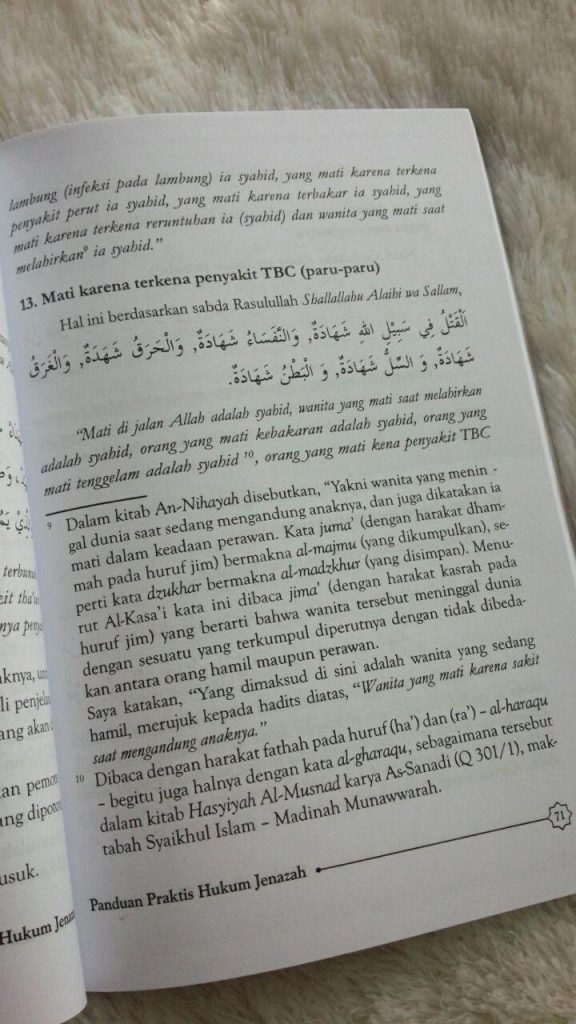 lambung (infeksi pada lambung) ia syahid, yang mati karena terkena
penyakit perut ia syahid, yang mati karena terbakar ia syahid, yang
mati karena terkena reruntuhan ia (syahid) dan wanita yang mati saat
melahirkan⁹ ia syahid.”
13. Mati karena terkena penyakit TBC (paru-paru)
Hal ini berdasarkan sabda Rasulullah Shallallahu Alaihi wa Sallam,
اَلْقَتْلُ فِي سَبِيْلِ اللهِ شَهَادَةٌ, وَالنَّفَسَاءُ شَهَادَةٌ, وَالْحَرَقُ شَهَدَةٌ, وَالْغَرَقُ
شَهَادَةٌ, وَ السِّلُّ شَهَادَةٌ, وَ الْبَطْنُ شَهَادَةٌ.
“Mati di jalan Allah adalah syahid, wanita yang mati saat melahirkan
adalah syahid, orang yang mati kebakaran adalah syahid, orang yang
mati tenggelam adalah syahid ¹⁰, orang yang mati kena penyakit TBC
9 Dalam kitab An-Nihayah disebutkan, “Yakni wanita yang menin -
gal dunia saat sedang mengandung anaknya, dan juga dikatakan ia
mati dalam keadaan perawan. Kata juma’ (dengan harakat dham-
mah pada huruf jim) bermakna al-majmu (yang dikumpulkan), se-
perti kata dzukhar bermakna al-madzkhur (yang disimpan). Menu-
rut Al-Kasa’i kata ini dibaca jima’ (dengan harakat kasrah pada
huruf jim) yang berarti bahwa wanita tersebut meninggal dunia
dengan sesuatu yang terkumpul diperutnya dengan tidak dibeda-
kan antara orang hamil maupun perawan.
Saya katakan, “Yang dimaksud di sini adalah wanita yang sedang
hamil, merujuk kepada hadits diatas, “Wanita yang mati karena sakit
saat mengandung anaknya.”
10 Dibaca dengan harakat fathah pada huruf (ha’) dan (ra’) – al-haraqu
– begitu juga halnya dengan kata al-gharaqu, sebagaimana tersebut
dalam kitab Hasyiyah Al-Musnad karya As-Sanadi (Q 301/1), mak-
tabah Syaikhul Islam – Madinah Munawwarah.
71
Panduan Praktis Hukum Jenazah
usuk.